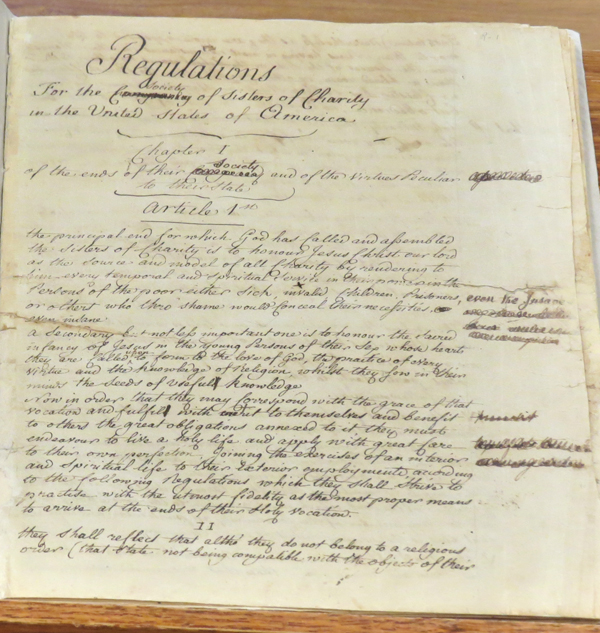 Regulations
Society
For the Company of Sisters of Charity
in the United States of America
Chapter I
Society
of the ends of their and of the Virtues Peculiar
to their State
Article 1st
the principal end for which God has called and assembled
the Sisters of Charity is to honour Jesus Christ our lord
as the Source and model of all Charity by rendering to
him every temporal and Spiritual Service in their power in the
Persons of the poor either Sick, invalid Children, Prisoners, even the Insane
or others who thro' shame would Conceal their necessities.
even insane
a Secondary but not less important one is to honour the Sacred
infancy of Jesus in the young Persons of their Sex whose hearts
they are Called to form to the love of God, the practice of every
Virtue and the Knowledge of Religion, whilst they sow in their
minds the Seeds of Useful Knowledge
Now in order that they may Correspond with the grace of that
vocation and fulfil with merit to themselves and benefit
to others the great obligations annexed to it they must
endeavour to live a holy life and apply with great Care
to their own perfection Joining the exercises of an interior
and Spiritual life to their exterior employments according
to the following Regulations which they shall Strive to
practise with the utmost fidelity as the most proper means
to arrive at the ends of their Holy vocation.
II
they shall reflect that altho' they do not belong to a religious
order (that state not being compatible with the objects of their